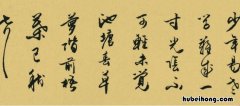 少年易老
学难成一
寸光阴不
可轻未觉
池塘春草
梦阶前梧
叶已秋
hubeihong.com